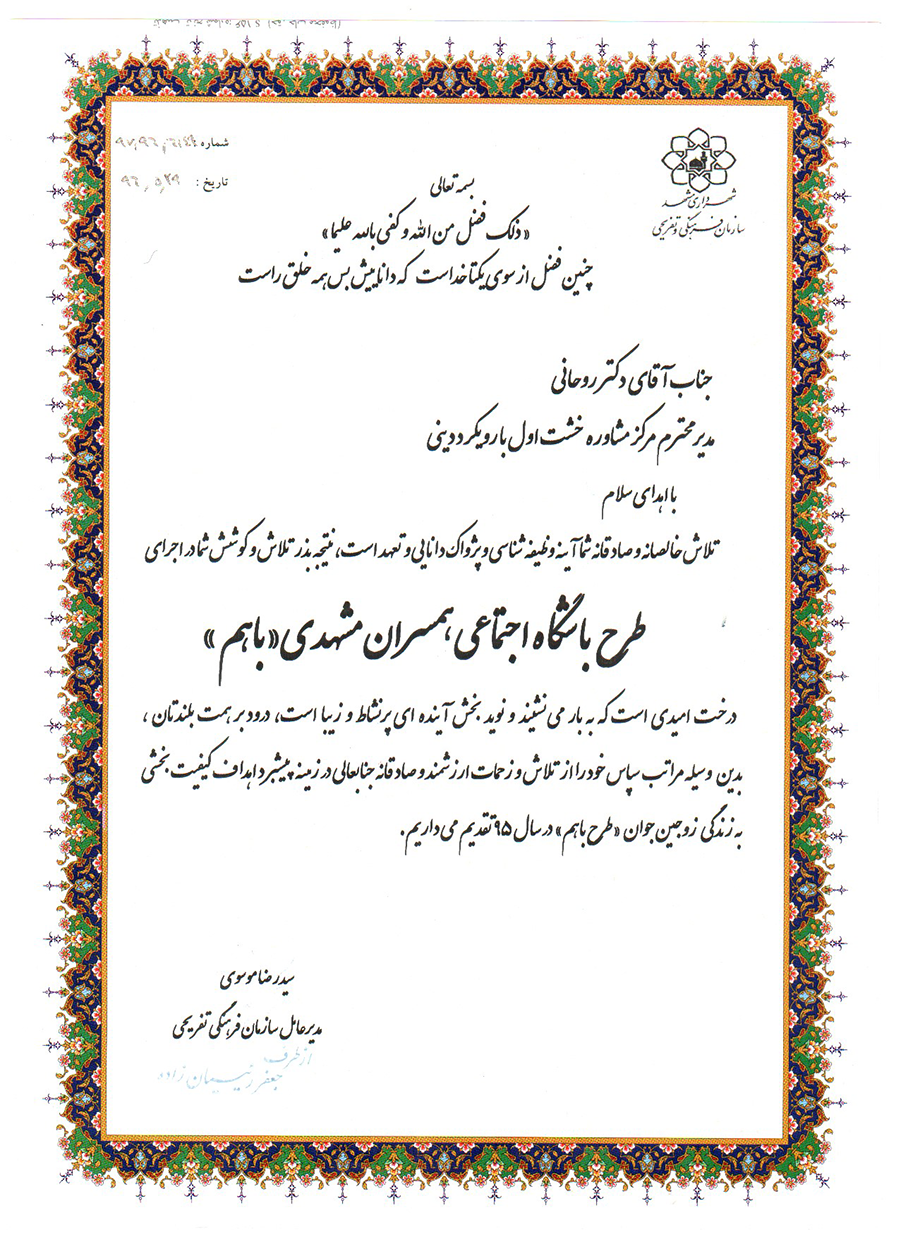 شماره
تاریخ : ۹۶,۵,۲۹
شهرداری مشهد
سازمان فرهنگی و تفریحی
بسمه تعالی
«ذلک فضل من الله و کفی بالله علیما»
چنین فضل از سوی یکتا خداست که داناییش بس همه خلق راست
جناب آقای دکتر روحانی
مدیر محترم مرکز مشاوره خشت اول با رویکرد دینی
با اهدای سلام
تلاش خالصانه و صادقانه شما آینه وظیفه شناسی و پژواک دانایی و تعهد است، نتیجه بذر تلاش و کوشش شما در اجرای
طرح باشگاه اجتماعی همسران مشهدی «باهم»
درخت امیدی است که به بار می نشیند و نوید بخش آینده ای پرنشاط و زیبا است، درود بر همت بلندتان ،
بدین وسیله مراتب سپاس خود را از تلاش و زحمات ارزشمند و صادقانه جنابعالی در زمینه پیشبرد اهداف کیفیت بخشی
به زندگی زوجین جوان «طرح باهم» در سال ۹۵ تقدیم می داریم.
سید رضا موسوی
مدیرعامل سازمان فرهنگی تفریحی
از طرف
جعفر